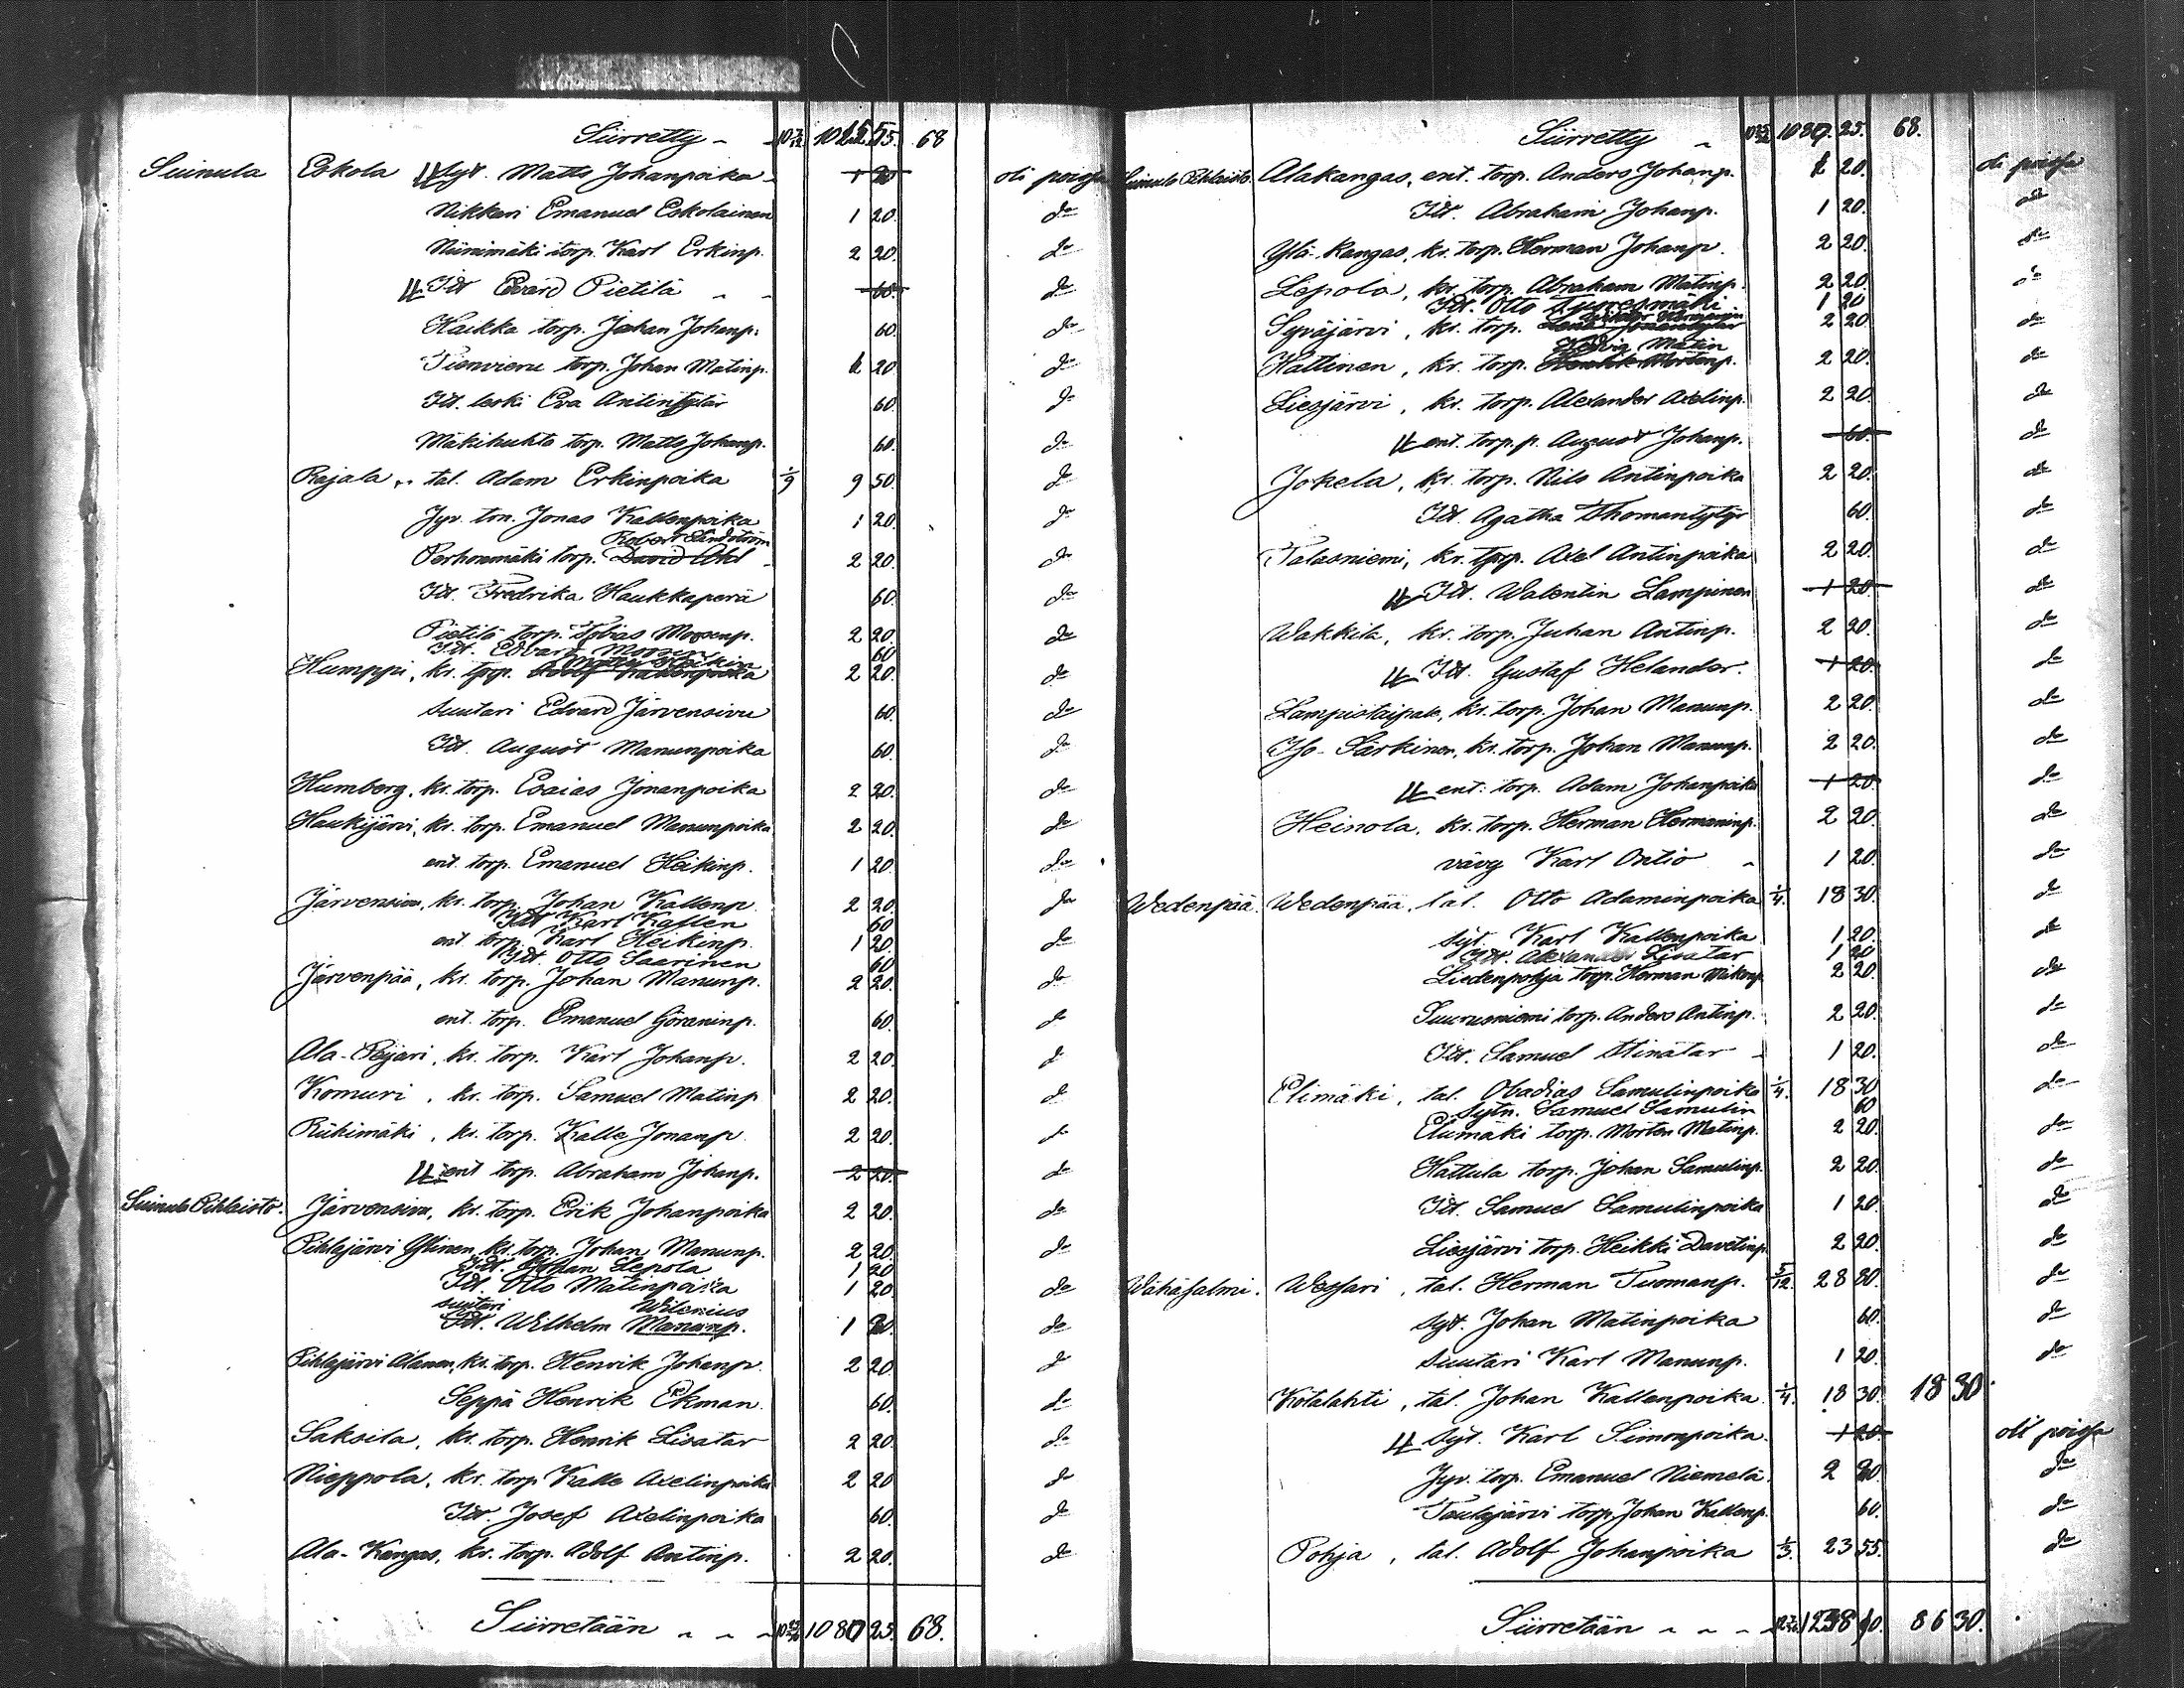 Siirretty 68
Suinula Eskola Matts Johanpoika 1 20 oli poissa
Nikkari Emanuel Eskolainen 1 20. do
Niinimäki torp. Karl Erkinp. 2 20. do
Idt Edvard Pietilä 60. do
Haikka torp. Johan Johanp. 60. do
Pienvieru torp. Johan Matinp. 20. do
Idt. leski Eva Antintytär 60. do
Mäkihuhta torp. Matts Johanp. 60. do
Rajala, tal. Adam Erkinpoika 1/9 9 50. do
Jyv. torp. Jonas Kallenpoika 1 20. do
Robert Sandström
Perhonmäki torp. David 2 20. do
Idt. Fredrika Haukkaperä 60. do
Pietilä torp. Tobias Mosenp. 2 20. do
Idt. Edvard Mosesp. 60
Heikin
Humppi, kr. torp. Adolf Kallenpoika 2 20. do
Suutari Edvard Järvensivu 60. do
Idt. August Manunpoika 60. do
Humberg, kr. torp. Esaias Jonanpoika 2 20. do
Haukijärvi, kr. torp. Emanuel Manunpoika 2 20. do
ent. torp. Emanuel Heikinp. 1 20. do
Järvensivu, kr. torp. Johan Kallenp. 2 20. do
Idt Karl Kallen 60
ent. torp. Karl Heikinp. 1 20. do
Idt. Otto Saarinen 60
Järvenpää, kr. torp. Johan Manunp. 2 20. do
ent. torp. Emanuel Göraninp. 60. do
Ala-Peijari, kr. torp. Karl Johanp. 2 20. do
Komuri, kr. torp. Samuel Matinp 2 20. do
Riihimäki, kr. torp. Kalle Jonanp. 2 20. do
ent torp. Abraham Johanp. 2 20. do
Suinula Pihlaisto. Järvensivu, kr. torp. Erik Johanpoika 2 20. do
Pihlajärvi Ylinen kr. torp. Johan Manunp. 2 20. do
Idt. Johan Lepola 1 20
Idt. Otto Matinpoika 1 20 do
suutari Wilenius
Idt. Wilhelm Manunp. 1 20. do
Pihlajärvi Alanen, kr. torp. Henrik Johanp. 2 20. do
Seppä Henrik Ekman 60. do
Saksila, kr. torp. Henrik Lisatar 2 20. do
Nieppola, kr. torp. Kalle Axelinpoika 2 20 do
Idt. Josef Axelinpoika 60. do
Ala-Kangas, kr. torp. Adolf Antinp. 2 20. do
Siirretään 1080 25. 68.
Siirretty 25. 68.
Suinula Pihlaisto. Alakangas, ent. torp. Anders Johanp. 20. oli poissa
Idt. Abraham Johanp. 1 20. do
Ylä-Kangas, kr. torp. Herman Johanp. 2 20. do
Lepola, kr. torp. Abraham Matinp. 2 20. do
Idt. Otto 1 20
Syväjärvi, kr. torp. 2 20. do
Hedvig Matin
Hattinen, kr. torp. 2 20. do
Liesjärvi, kr. torp. Alexander Axelinp. 2 20. do
ent. torp. p. August Johanp. 60. do
Jokela, kr. torp. Nils Antinpoika 2 20. do
Idt. Agatha Thomantytär 60. do
Talasniemi, kr. torp. Axel Antinpoika 2 20. do
Idt. Walentin Lampinen 1 20. do
Wakkila, kr. torp. Juhan Antinp. 2 20. do
Idt. Gustaf Helander. 1 20. do
Lampistaipale, kr. torp. Johan Manunp. 2 20. do
Iso-Särkinen, kr. torp. Johan Manunp. 2 20. do
ent. torp. Adam Johanpoika 1 20. do
Heinola, kr. torp. Herman Hermaninp. 2 20. do
vävy Karl Ontio 1 20. do
Wedenpää. Wedenpää, tal. Otto Adaminpoika 1/4. 18 30. do
Syt. Karl Kallenpoika 1 20. do
Idt. Alexander Lisatar 1 20
Liedenpohja torp. Herman 2 20. do
Suurusniemi torp. Anders Antinp. 2 20. do
Idt. Samuel Stinatar 1 20. do
Elimäki, tal. Obadias Samulinpoika 1/4. 18 30 do
Sytn. Samuel Samulin 60
Elumäki torp. Morten Matinp. 2 20. do
Hattula torp. Johan Samulinp. 2 20. do
Idt. Samuel Samulinpoika 1 20. do
Liesjärvi torp. Heikki Davetinp. 2 20. do
Wähäsalmi. Wessari, tal. Herman Tuomanp. 5/12. 28 80. do
Syt. Johan Matinpoika 60. do
Suutari Karl Manunp. 1 20. do
Kotalahti, tal. Johan Kallenpoika 1/4. 18 30. 18 30.
Syt. Karl Simonpoika. 1 20. oli poissa
Jyv. torp. Emanuel Niemelä. 2 20. do
Torp. Johan Kallenp. 60. do
Pohja, tal. Adolf Johanpoika 1/3. 23 55. do
Siirretään 86 30.